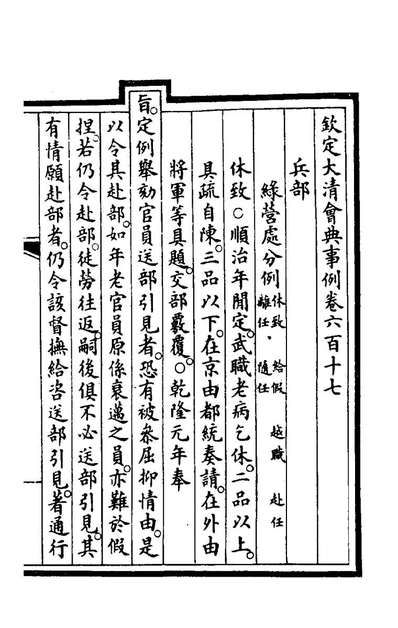 欽定大清會典事例卷六百十七
兵部
綠營處分例休致 給假 越職 赴任
離任 隨任
休致○順治年閒定。武職老病乞休。二品以上。
具疏自陳。三品以下。在京由都統奏請。在外由
將軍等具題。交部覈覆。○乾隆元年奉
旨。定例舉劾官員送部引見者。恐有被參屈抑情由。是
以令其赴部。如年老官員原係衰邁之員。亦難於假
捏。若仍令赴部。徒勞往返。嗣後俱不必送部引見。其
有情願赴部者。仍令該督撫給咨送部引見。著通行